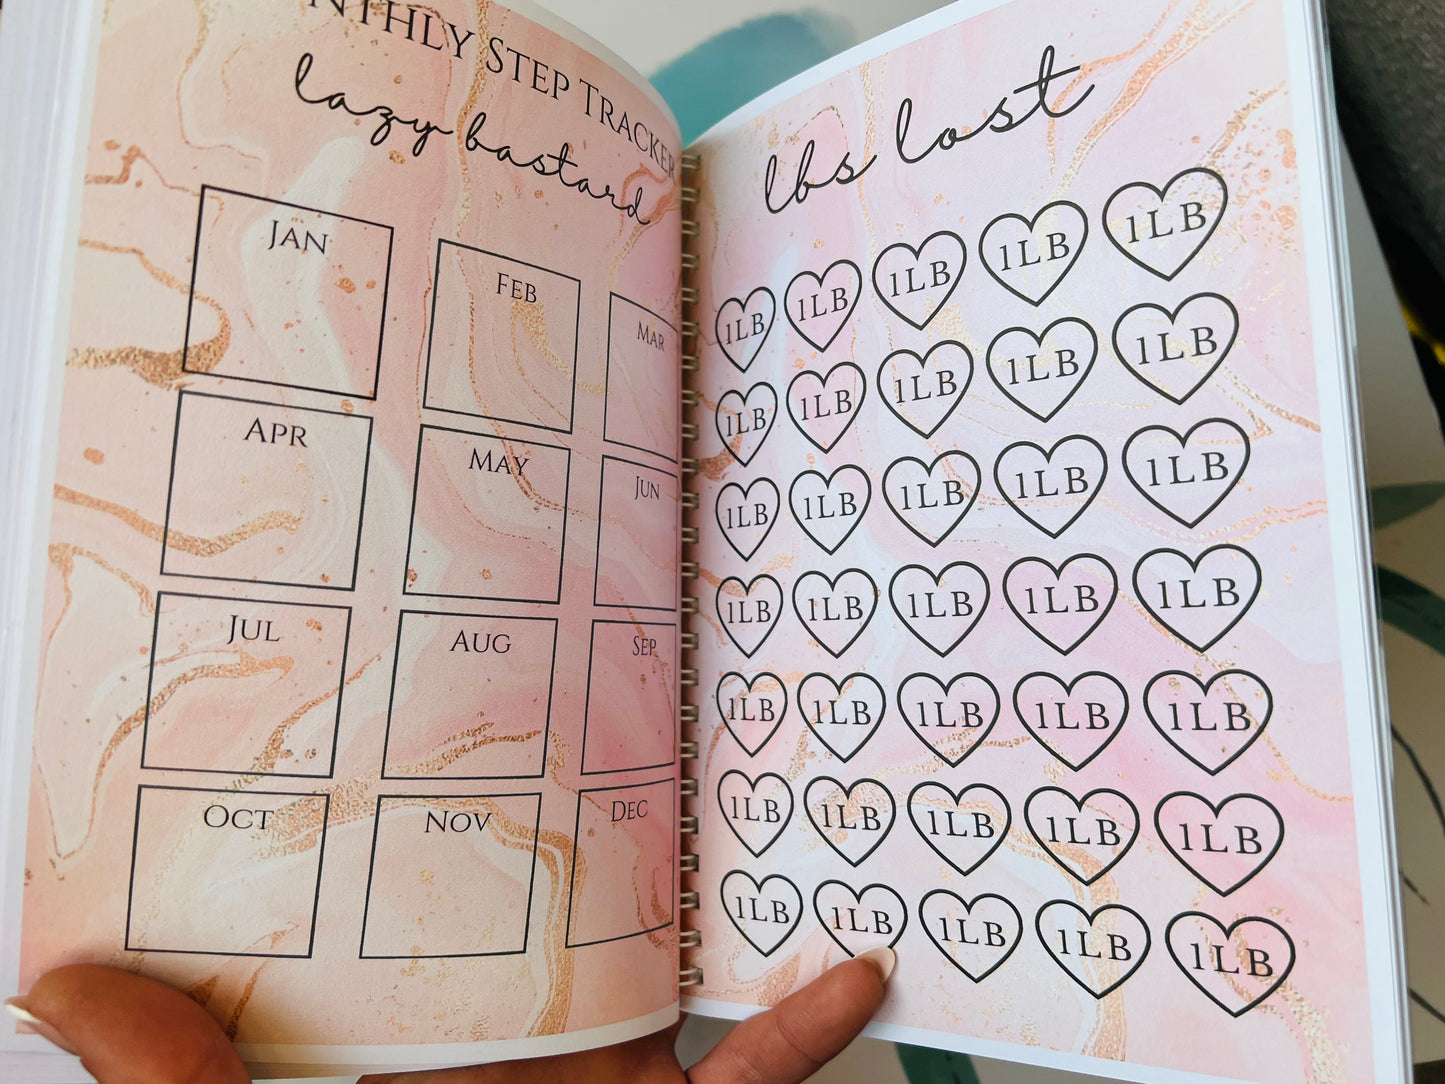 NTHLY STEP TRACKER
lazy bastard
JAN FEB MAR
APR MAY JUN
JUL AUG SEP
OCT NOV DEC
lbs lost
1LB 1LB 1LB 1LB 1LB
1LB 1LB 1LB 1LB 1LB
1LB 1LB 1LB 1LB 1LB
1LB 1LB 1LB 1LB 1LB
1LB 1LB 1LB 1LB 1LB
1LB 1LB 1LB 1LB 1LB
1LB 1LB 1LB 1LB 1LB